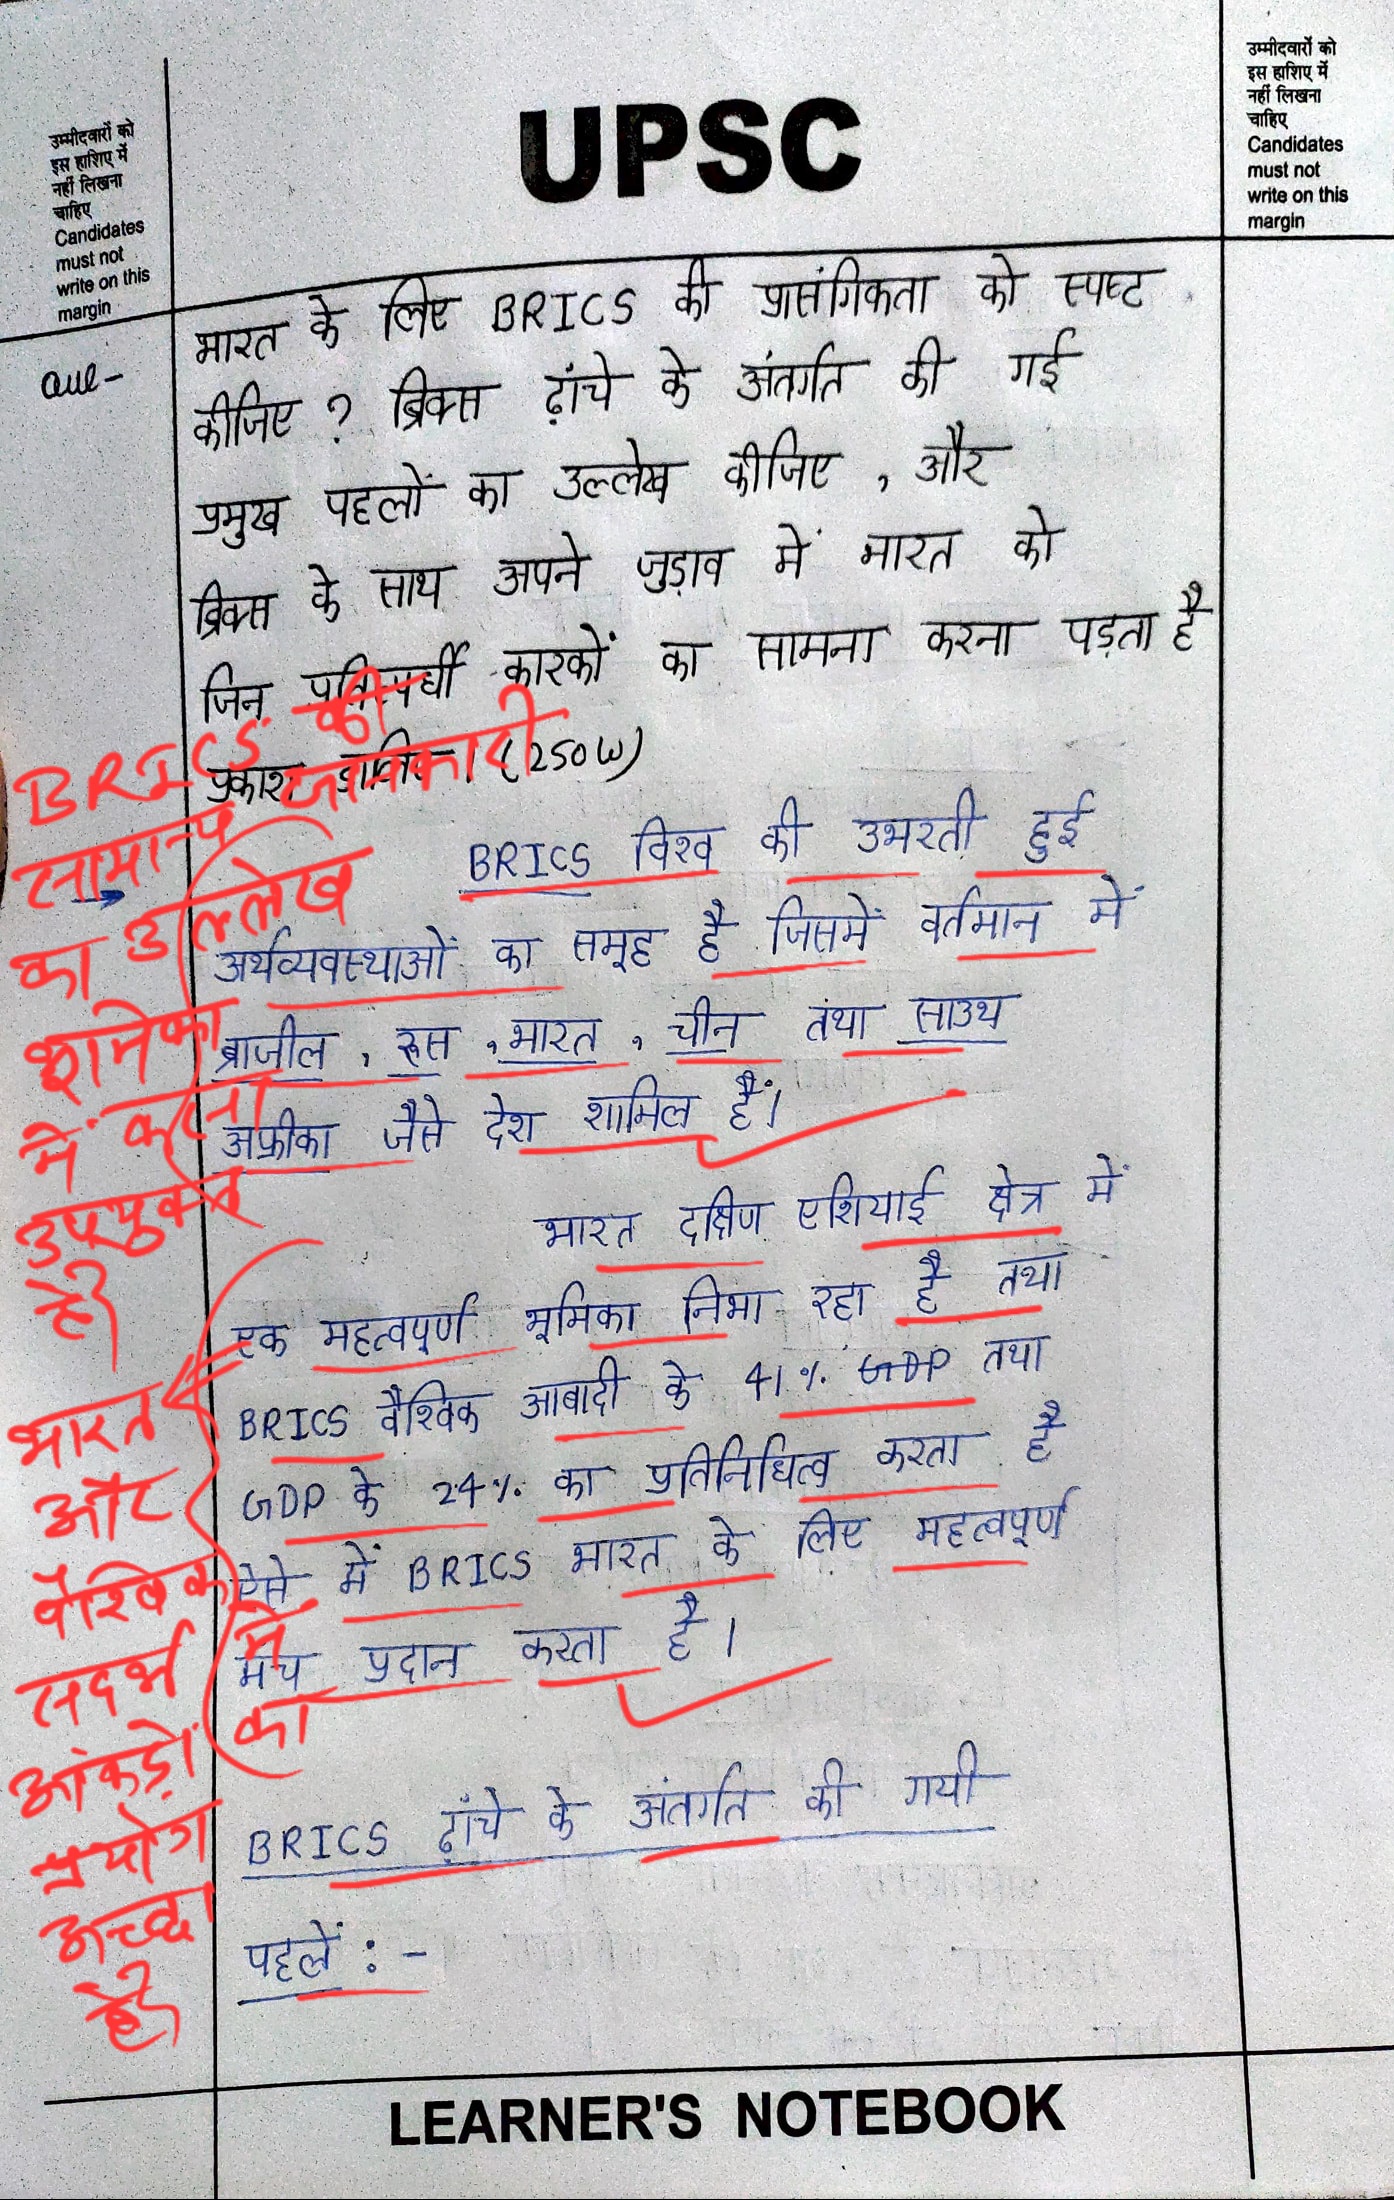 उम्मीदवारों को
इस हाशिए में
नहीं लिखना
चाहिए
Candidates
must not
write on this
margin
UPSC
उम्मीदवारों को
इस हाशिए में
नहीं लिखना
चाहिए
Candidates
must not
write on this
margin
भारत के लिए BRICS की प्रासंगिकता को स्पष्ट
कीजिए ? ब्रिक्स ढ़ांचे के अंतर्गत की गई
प्रमुख पहलों का उल्लेख कीजिए , और
ब्रिक्स के साथ अपने जुड़ाव में भारत को
जिन प्रतिस्पर्धी कारकों का सामना करना पड़ता है
प्रकाश डालिए । (250W)
BRICS विश्व की उभरती हुई
अर्थव्यवस्थाओं का समूह है जिसमें वर्तमान में
ब्राजील , रूस , भारत , चीन तथा साउथ
अफ्रीका जैसे देश शामिल हैं।
भारत दक्षिण एशियाई क्षेत्र में
एक महत्वपूर्ण भूमिका निभा रहा है तथा
BRICS वैश्विक आबादी के 41% GDP तथा
GDP के 24% का प्रतिनिधित्व करता है
ऐसे में BRICS भारत के लिए महत्वपूर्ण
मंच प्रदान करता है।
BRICS ढ़ांचे के अंतर्गत की गयी
पहलें : -
BRICS की
सामान्य जानकारी
का उल्लेख
भूमिका
में करना
उपयुक्त
है
भारत
और
वैश्विक
संदर्भ में
आंकड़ों का
प्रयोग
अच्छा
है
LEARNER'S NOTEBOOK